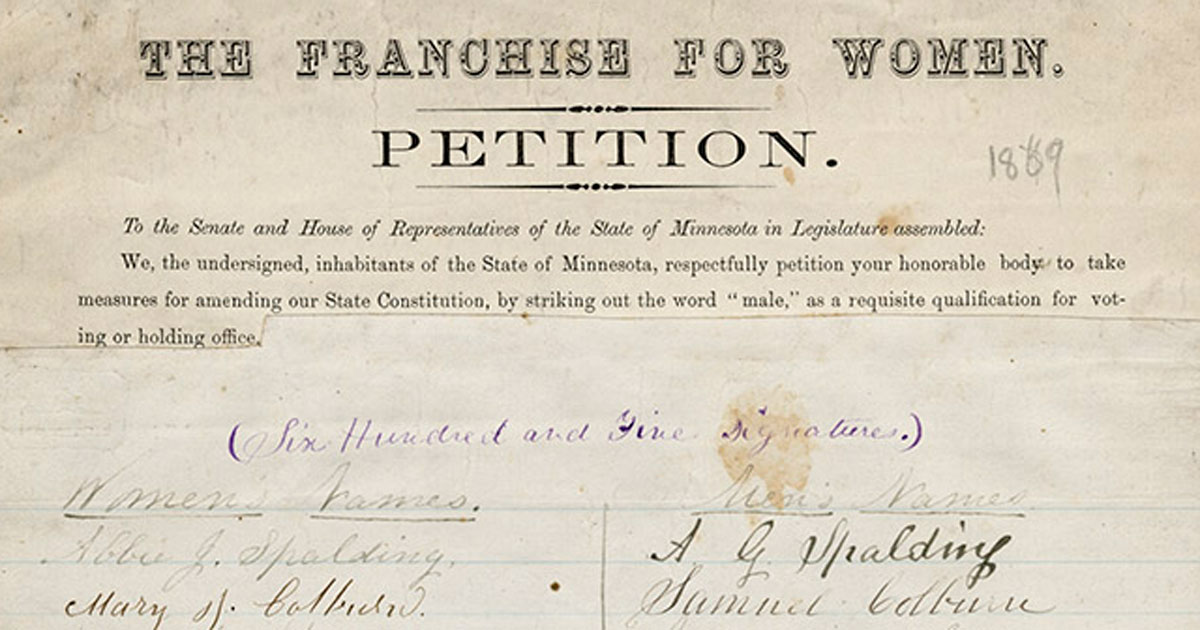 THE FRANCHISE FOR WOMEN.
PETITION.
1869
To the Senate and House of Representatives of the State of Minnesota in Legislature assembled:
We, the undersigned, inhabitants of the State of Minnesota, respectfully petition your honorable body to take
measures for amending our State Constitution, by striking out the word "male," as a requisite qualification for vot-
ing or holding office.
(Six Hundred and Five Signatures.)
Women's Names. Men's Names
Abbie J. Spalding. A G Spalding
Mary J. Colburn. Samuel Colburn